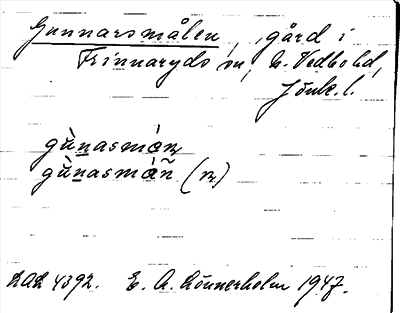 Gunnarsmålen, gård i
Frinnaryds sn, N. Vedbohd,
Jönk. l.
gùnasmán
gùnasmáñ (n)
LAL 4392. E. A. Lönnerholm 1947.